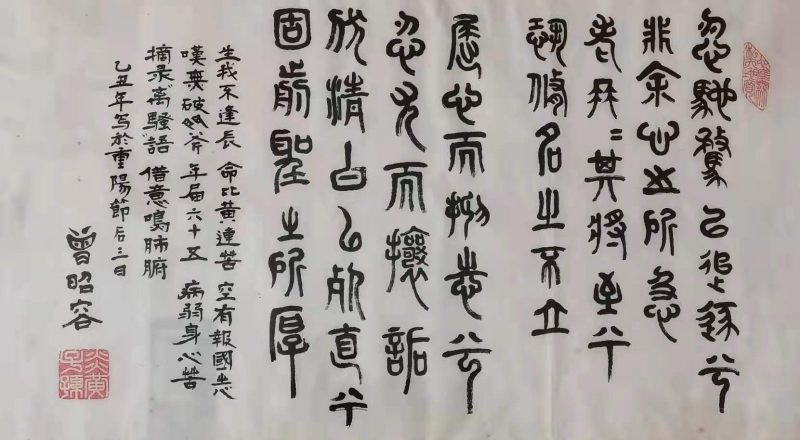 忽馳騖以追逐兮
非余心之所急
老冉〻其將至兮
恐脩名之不立
屈心而抑志兮
忍尤而攘詬
伏清白以死直兮
固前聖之所厚
生我不逢長 命比黃連苦 空有報國志
嘆無破斧 年届六十五 病弱身心苦
摘录离騷語 借意鳴肺腑
乙丑年写於重陽節后三日
曾昭容
炎黃子孫